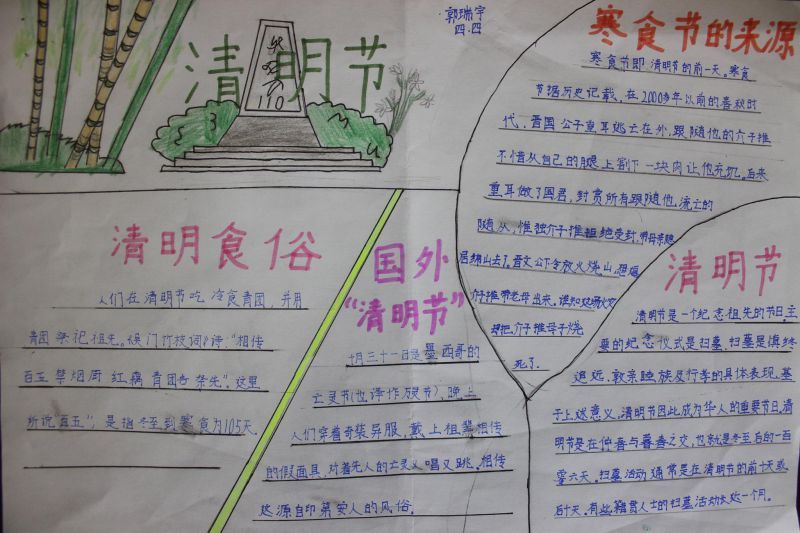 清明节
郭瑞宇
四.四
寒食节的来源
寒食节即清明节的前一天。寒食
节据历史记载,在2000多年以前的春秋时
代,晋国公子重耳逃亡在外,跟随他的介子推
不惜从自己的腿上割下一块肉让他充饥。后来
重耳做了国君,封赏所有跟随他流亡的
随从,惟独介子推拒绝受封,带母亲隐
居绵山去了,晋文公下令放火烧山,想逼
介子推带老母出来。谁知这场火
却把介子推母子烧
死了.
清明食俗
人们在清明节吃冷食青团,并用
青团祭祀祖先。《吴门竹枝词》诗:“相传
百五禁烟厨 红藕青团各祭先”。这里
所说“百五”,是指冬至到寒食为105天.
国外
“清明节”
十月三十一日是墨西哥的
亡灵节(也译作万灵节),晚上
人们穿着奇装异服,戴上祖辈相传
的假面具,对着先人的亡灵又唱又跳。相传
这源自印第安人的风俗
清明节
清明节是一个纪念祖先的节日.主
要的纪念仪式是扫墓,扫墓是慎终
追远、敦亲睦族及行孝的具体表现,基
于上述意义,清明节因此成为华人的重要节日.清
明节是在仲春与暮春之交,也就是冬至后的一百
零六天。扫墓活动通常是在清明节的前十天或
后十天。有些籍贯人士的扫墓活动长达一个月。